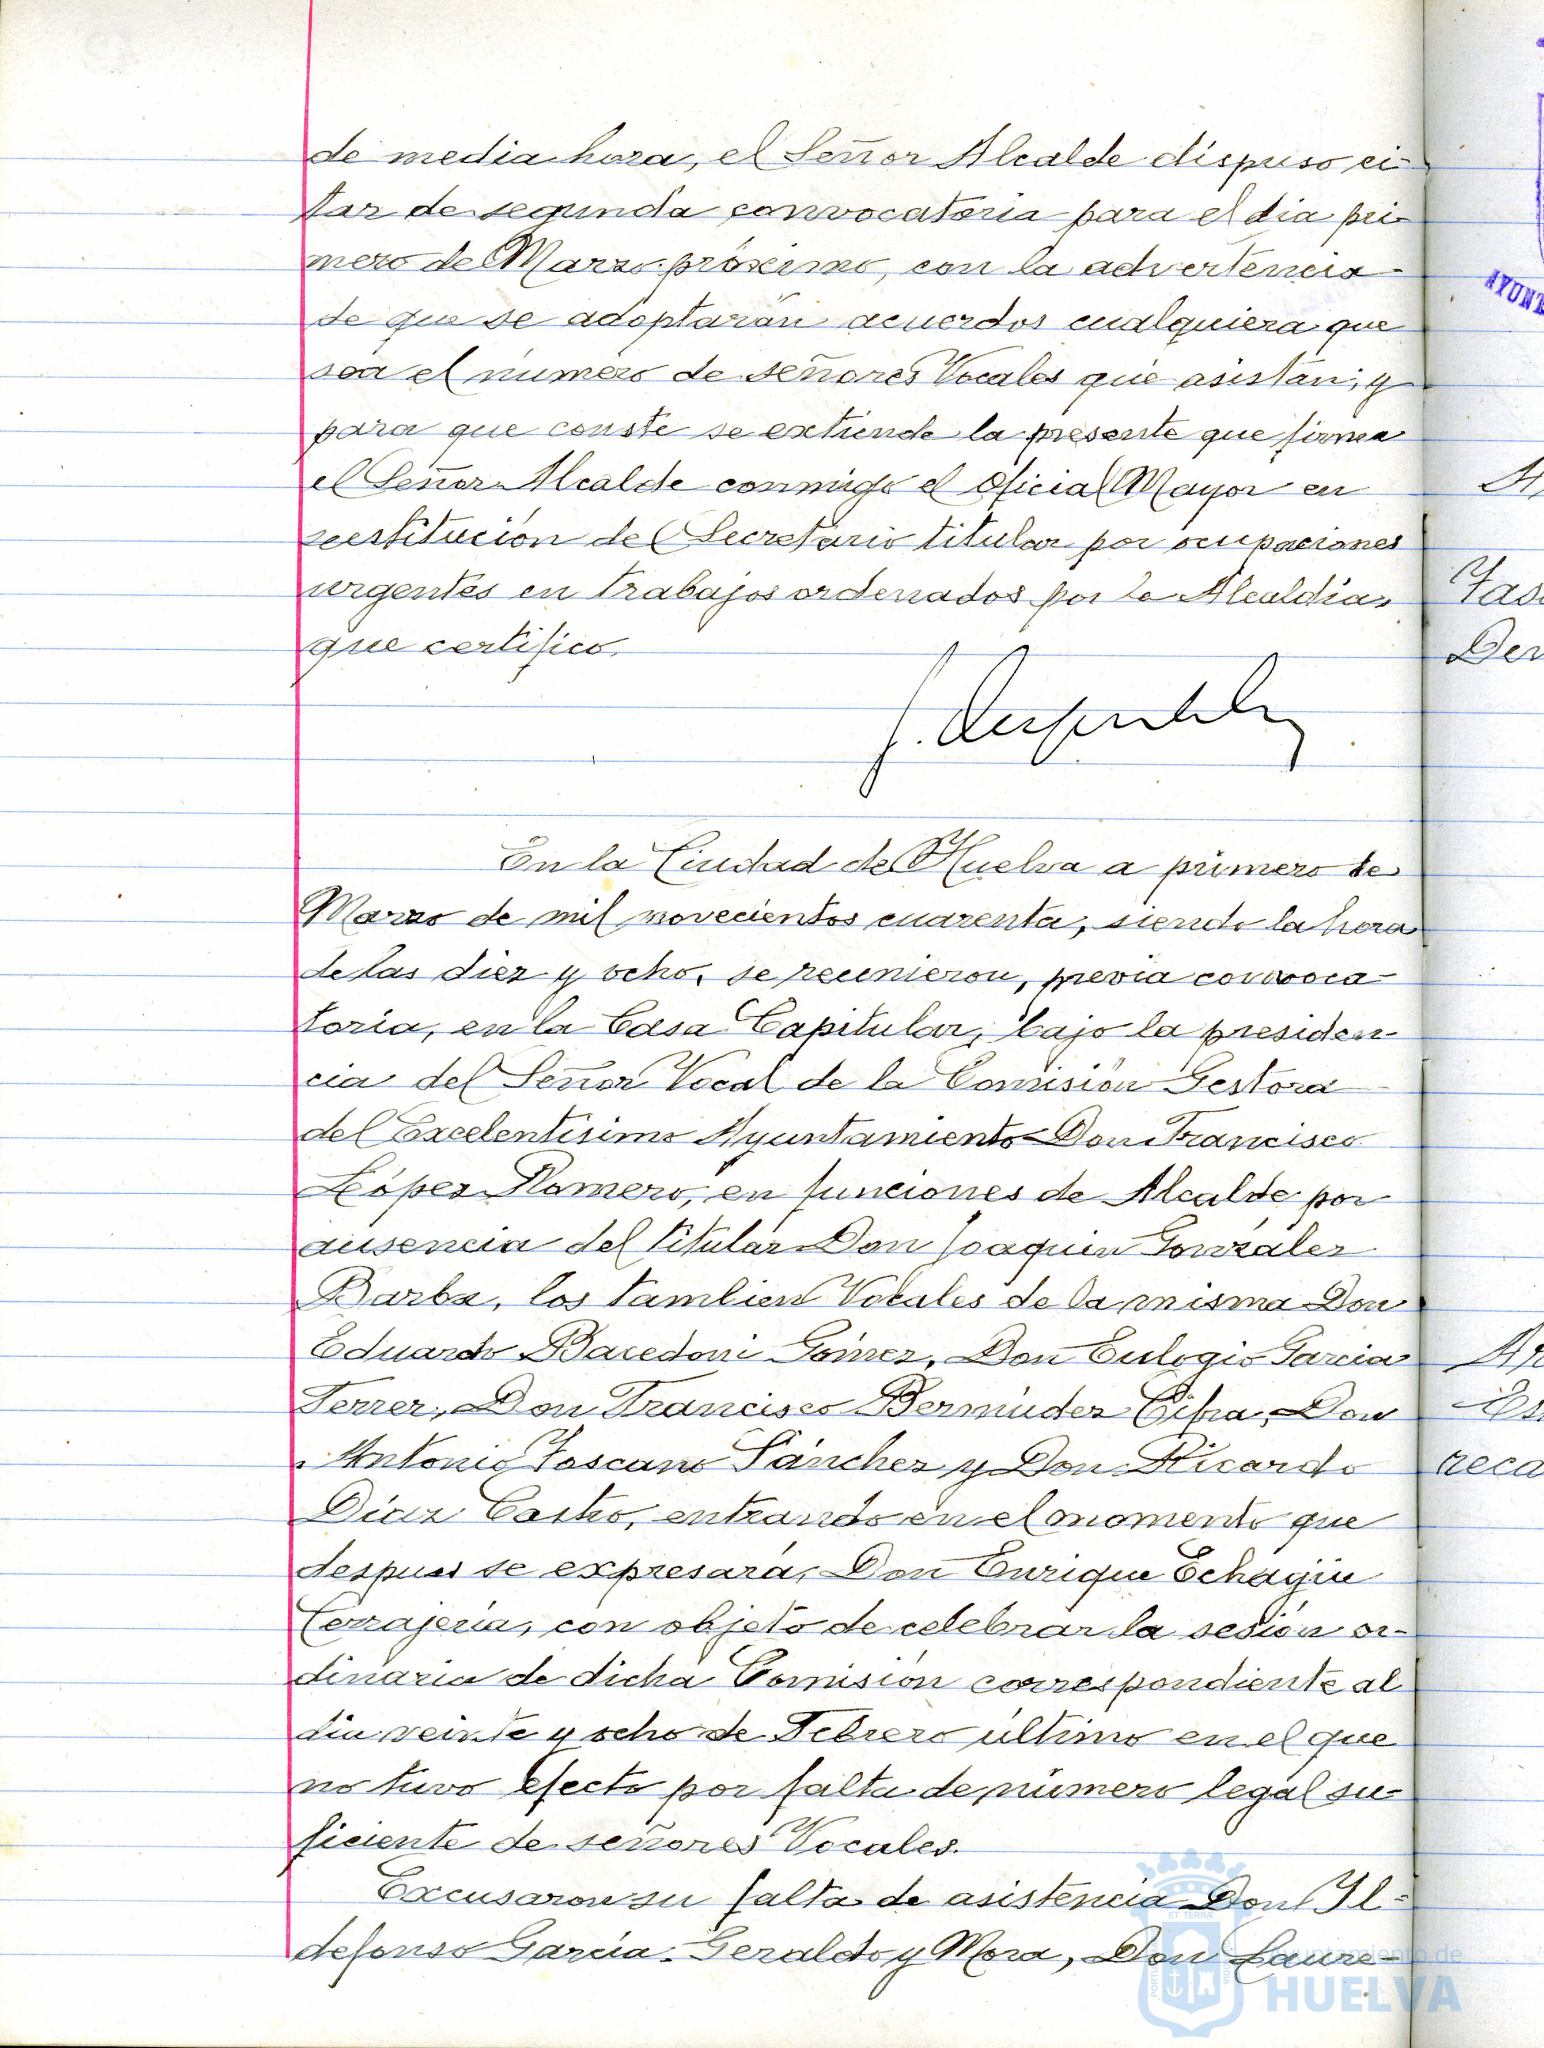 de media hora, el Señor Alcalde dispuso ci-
tar de segunda convocatoria para el dia pri-
mero de Marzo próximo, con la advertencia
de que se adoptarán acuerdos cualquiera que
sea el número de señores Vocales que asistan; y
para que conste se extiende la presente que firma
el Señor Alcalde conmigo el Oficial Mayor en
sustitución del Secretario titular por ocupaciones
urgentes en trabajos ordenados por la Alcaldía,
que certifico.
En la Ciudad de Huelva a primero de
Marzo de mil novecientos cuarenta, siendo la hora
de las diez y ocho, se reunieron, previa convoca-
toria, en la Casa Capitular, bajo la presiden-
cia del Señor Vocal de la Comisión Gestora
del Excelentísimo Ayuntamiento Don Francisco
López Romero, en funciones de Alcalde por
ausencia del titular Don Joaquin González
Barba, los tambien Vocales de la misma Don
Eduardo Bacedoni Gómez, Don Eulogio Garcia
Ferrer, Don Francisco Bermúdez Cifra, Don
Antonio Toscano Sánchez y Don Ricardo
Díaz Castro, entrando en el momento que
despues se expresará, Don Enrique Echagüe
Cerrajería, con objeto de celebrar la sesión or-
dinaria de dicha Comisión correspondiente al
dia veinte y ocho de Febrero último en el que
no tuvo efecto por falta de número legal su-
ficiente de señores Vocales.
Excusaron su falta de asistencia Don Il-
defonso García-Geraldo y Mora, Don Laure-
Ayuntamiento de
HUELVA
AYUNT
Der
reca